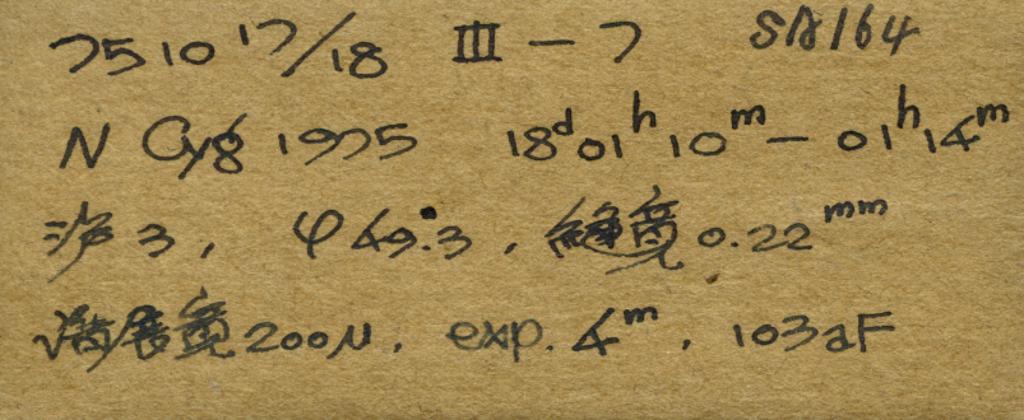 7510 17/18 III - 7 SA164
N Cyg 1975 18ᵈ01ʰ10ᵐ - 01ʰ14ᵐ
沪3, φ49°.3, 缝宽0.22ᵐᵐ
谱展宽200μ, exp. 4ᵐ, 103aF